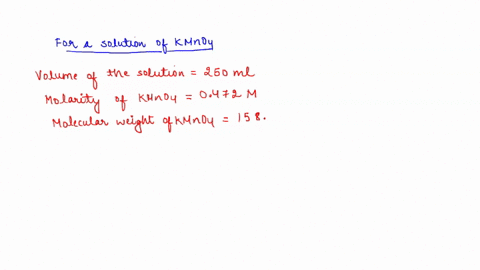 For a solution of KMnO4
Volume of the solution = 250 ml
Molarity of KMnO4 = 0.472 M
Molecular weight of KMnO4 = 158.